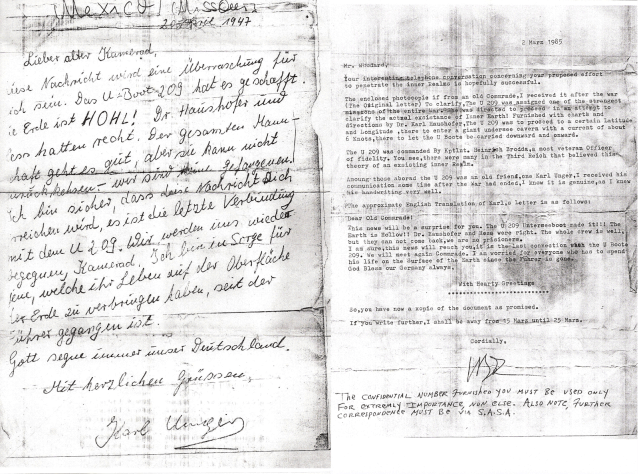 Mexico / (Missouri)
20 April 1947
Lieber alter Kamerad,
diese Nachricht wird eine Überraschung für
ich sein. Das U-Boot 209 hat es geschafft.
ie Erde ist HOHL! Dr Haushofer und
ess hatten recht. Der gesamten Mann-
haft geht es gut, aber sie kann nicht
zurückkehren - wir sind keine Gefangenen.
Ich bin sicher, dass diese Nachricht Dich
rreichen wird, es ist die letzte Verbindung
mit dem U 209. Wir werden uns wieder
begegnen, Kamerad. Ich bin in Sorge für
jene, welche ihr Leben auf der Oberfläche
der Erde zu verbringen haben, seit der
Führer gegangen ist.
Gott segne immer unser Deutschland.
Mit herzlichen Grüssen,
Karl Unger
2 Marz 1985
Mr. Woodard,
Your interesting telephone conversation concerning your proposed effort
to penetrate the inner Realm is hopefully successful.
The enclosed photocopie if from an old Comrade, I received it after the war
(The Original Letter) To clarify, The U 209 was assigned one of the strangest
missions of the entire war. She was directed to proceed in an attempt to
clarify the actual existance of Inner Earth! Furnished with charts and
directions by Dr. Karl Haushofer, The U 209 was to proceed to a certain latitude
and Longitude, there to enter a giant undersea cavern with a current of about
6 Knots, there to let the U Boote be carryed downward and onward.
The U 209 was commanded By Kptlvt. Heinrich Brodda, a most veteran Officer
of fidelity. You see, there were many in the Third Reich that believed this
theory of an existing inner Realm.
Amoung those aboard the U 209 was an old friend, one Karl Unger, I received his
communication some time after the War had ended, I know it is genuine, as I knew
his handwriting very well.
The approximate English Translation of Karl's letter is as follows:
Dear Old Comrade!
This news will be a surprise for you. The U 209 Unterseeboot made it!! The
Earth is hollow!! Dr. Haushofer and Hess were right. The whole crew is well,
but they can not come back, we are no prisoners.
I am sure, this news will reach you, it is the last connection with the U Boote
209. We will meet again Comrade. I am worried for everyone who has to spend
his life on the Surface of the Earth since the Fuhrer is gone.
God Bless our Germany always.
With Hearty Greetings
So, you have now a copie of the document as promised.
If you write further, I shall be away from 15 Marz until 25 Marz.
Cordially,
THE CONFIDENTIAL NUMBER FURNISHED YOU MUST BE USED ONLY
FOR EXTREMLY IMPORTANCE, NON ELSE. ALSO NOTE, FURTHER
CORRESPONDENCE MUST BE VIA S.A.S.A.